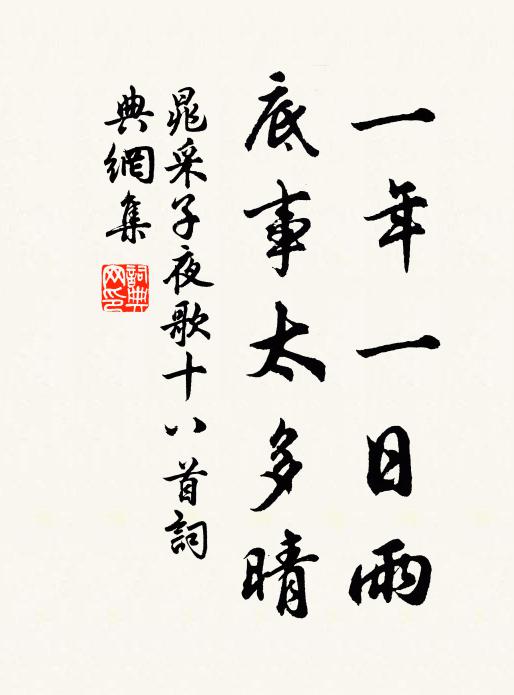 一年一日雨
底事太多晴
晁采子夜歌十八首詞
典網集
詞典網印